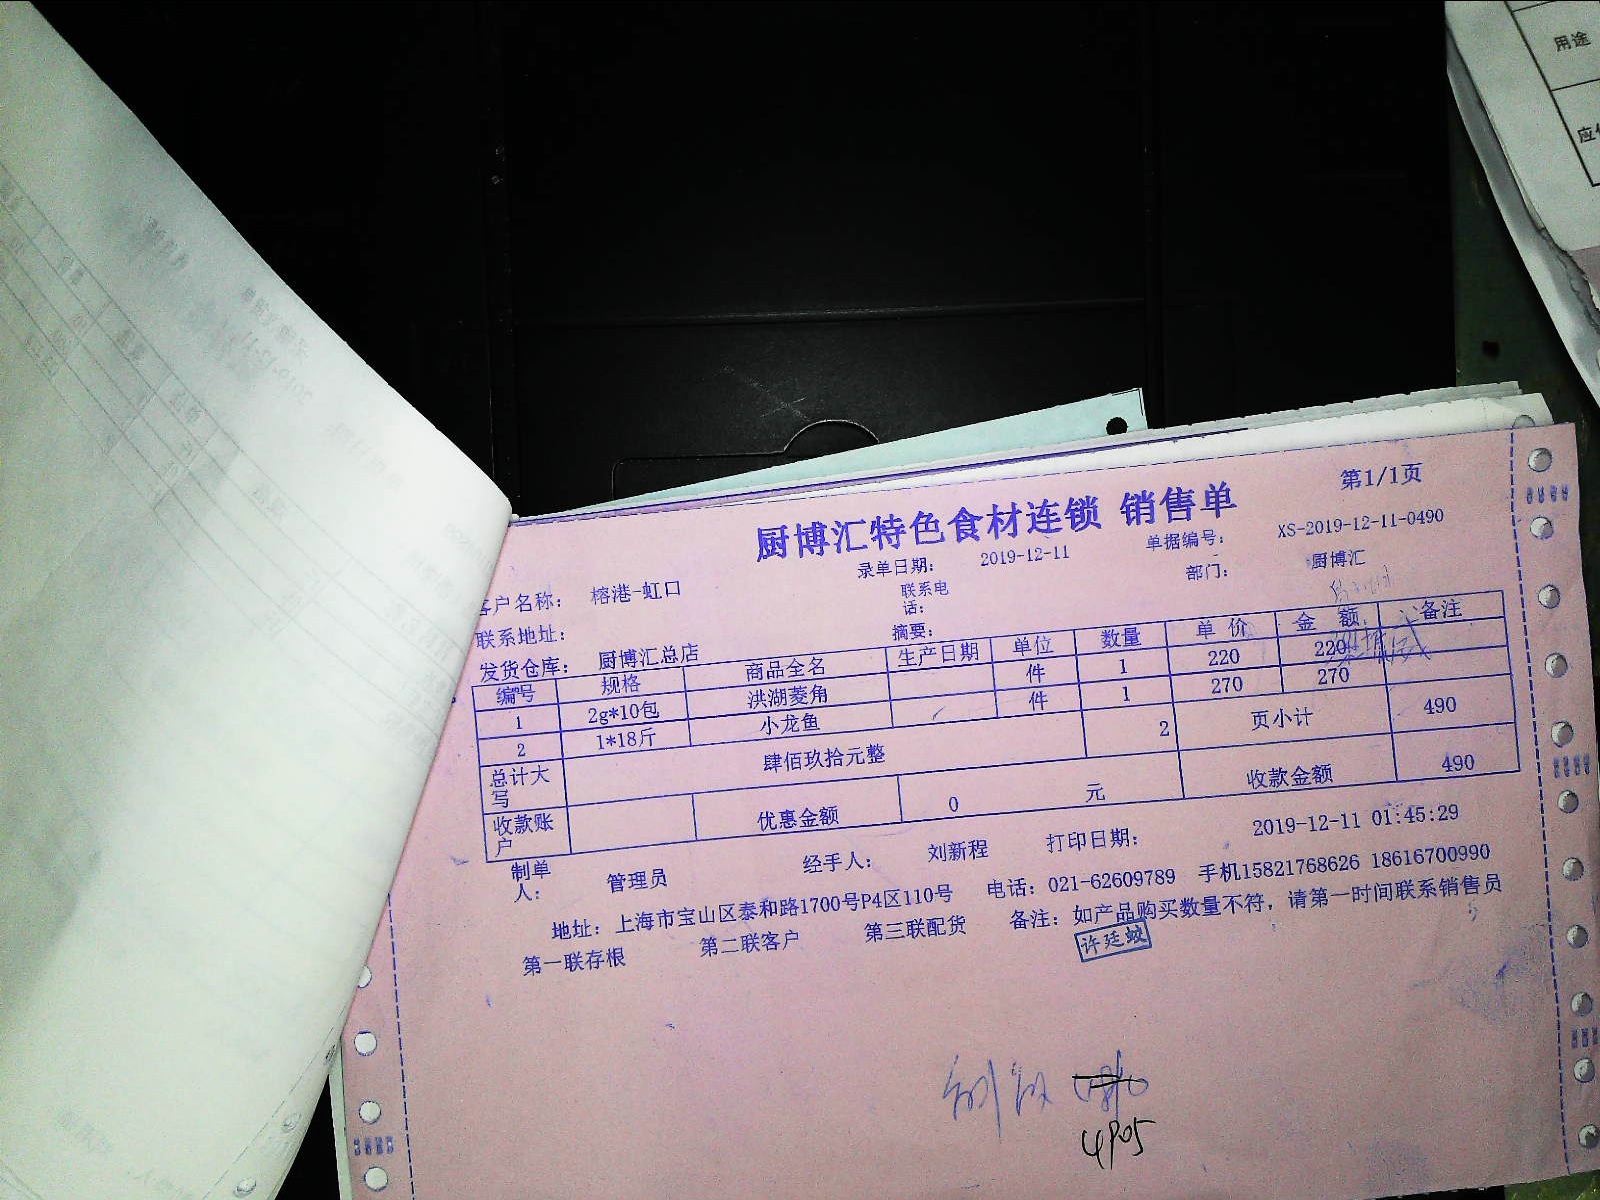 用途
第1/1页
厨博汇特色食材连锁 销售单
录单日期： 2019-12-11 单据编号： XS-2019-12-11-0490
客户名称： 榕港-虹口 联系电话： 部门： 厨博汇
联系地址： 摘要：
发货仓库： 厨博汇总店
编号 规格 商品全名 生产日期 单位 数量 单价 金额 备注
1 2g*10包 洪湖菱角 件 1 220 220
2 1*18斤 小龙鱼 件 1 270 270
总计大写 肆佰玖拾元整 2 页小计 490
收款账户 优惠金额 0 元 收款金额 490
制单人： 管理员 经手人： 刘新程 打印日期： 2019-12-11 01:45:29
地址： 上海市宝山区泰和路1700号P4区110号 电话：021-62609789 手机15821768626 18616700990
第一联存根 第二联客户 第三联配货 备注：如产品购买数量不符，请第一时间联系销售员
许廷蛟